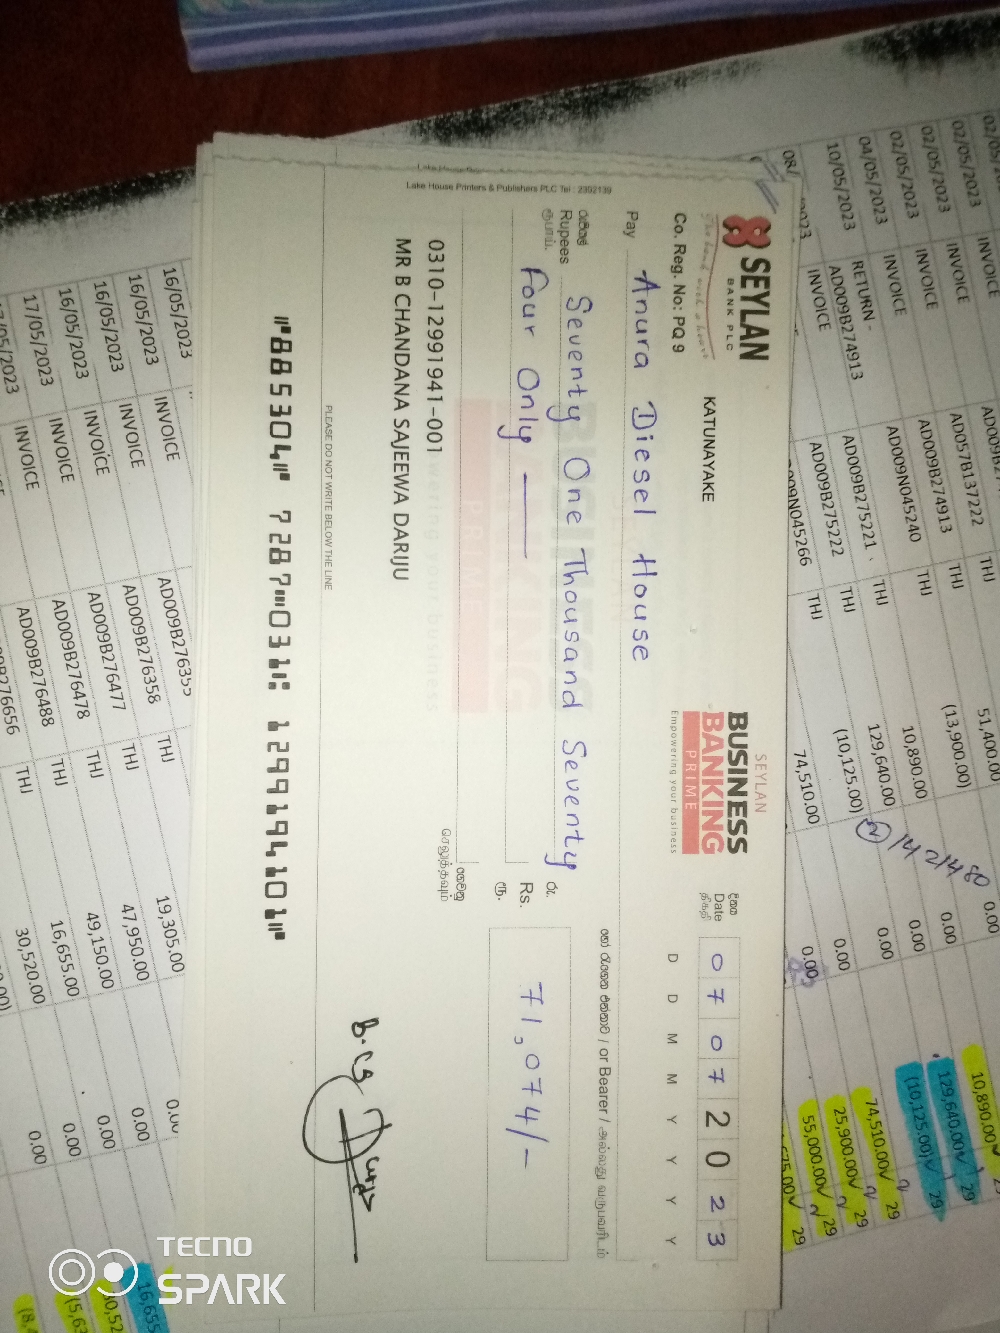 Lake House Printers & Publishers PLC Tel : 2392139
SEYLAN
BANK PLC
The bank with a heart
Co. Reg. No: PQ 9
KATUNAYAKE
SEYLAN
BUSINESS
BANKING
PRIME
Empowering your business
Date 0 7 0 7 2 0 2 3
D D M M Y Y Y Y
Pay Anura Diesel House
or Bearer
Rupees Seventy One Thousand Seventy
Four Only
Rs. 71,074/-
0310-12991941-001
MR B CHANDANA SAJEEWA DARIJU
PLEASE DO NOT WRITE BELOW THE LINE
⑈885304⑈ 7287⑉031⑆ 1299194101⑈
02/05/2023 INVOICE AD057B137222 THJ 51,400.00 0.00
02/05/2023 INVOICE AD009B274913 THJ (13,900.00) 0.00 10,890.00
02/05/2023 INVOICE AD009N045240 THJ 10,890.00 0.00 129,640.00 29
04/05/2023 RETURN - AD009B274913 AD009B275221 THJ 129,640.00 0.00 (10,125.00) 29
10/05/2023 INVOICE AD009B275222 THJ (10,125.00) 0.00 74,510.00 29
74,510.00 0.00 25,900.00 29
55,000.00 29
② 1421480
16/05/2023 INVOICE THJ 19,305.00
16/05/2023 INVOICE AD009B276358 THJ 47,950.00 0.00
16/05/2023 INVOICE AD009B276477 THJ 49,150.00 0.00
16/05/2023 INVOICE AD009B276478 THJ 16,655.00 0.00
17/05/2023 INVOICE AD009B276488 THJ 30,520.00 0.00
TECNO
SPARK